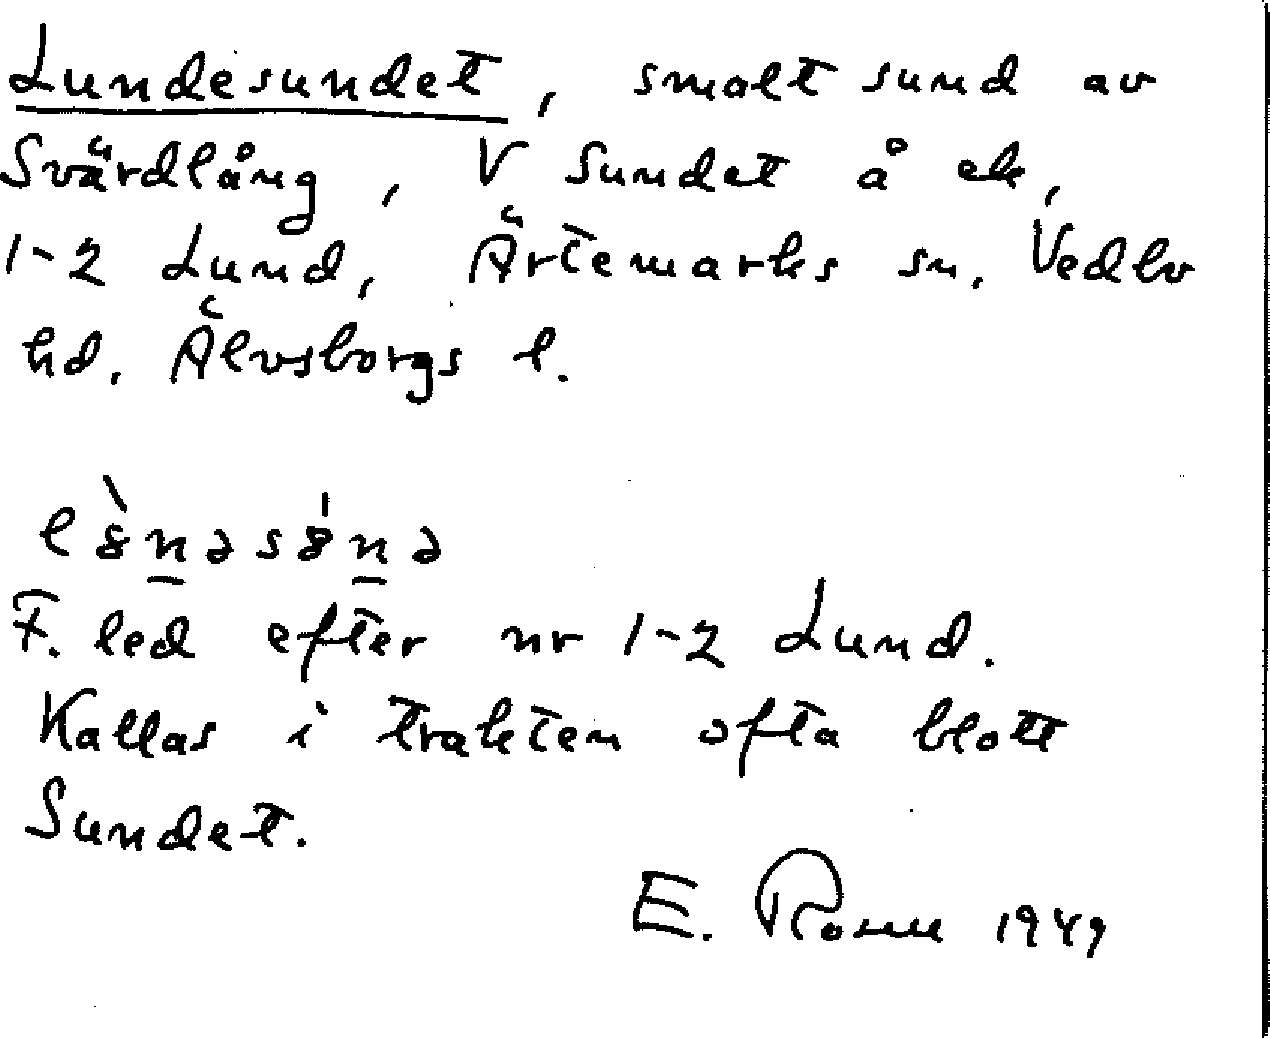 Lundesundet, smalt sund av
Svärdlång, V Sundet å ek,
1-2 Lund, Ärtemarks sn, Vedbo
hd. Älvsborgs l.
F. led efter nr 1-2 Lund.
Kallas i trakten ofta blott
Sundet.
E. 1949